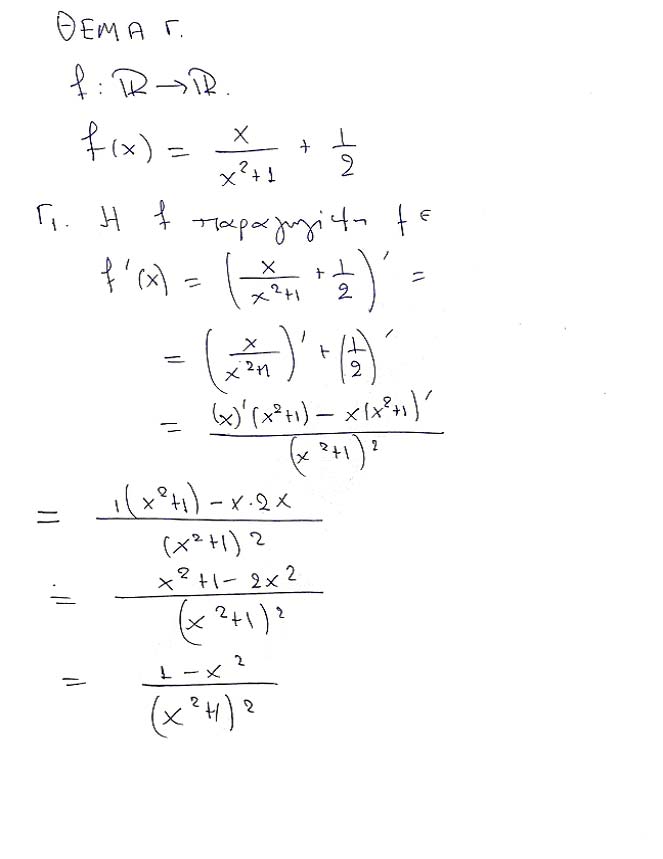 ΘΕΜΑ Γ.
f : ℝ → ℝ.
f(x) = x/(x²+1) + 1/2
Γ1. Η f παραγωγίσιμη με
f'(x) = (x/(x²+1) + 1/2)' =
= (x/(x²+1))' + (1/2)'
= ((x)'(x²+1) - x(x²+1)')/(x²+1)²
= (1(x²+1) - x·2x)/(x²+1)²
= (x²+1-2x²)/(x²+1)²
= (1-x²)/(x²+1)²